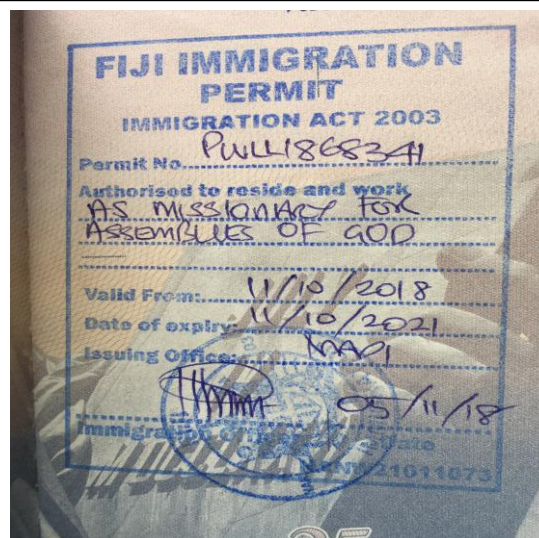 FIJI IMMIGRATION
PERMIT
IMMIGRATION ACT 2003
Permit No. PWLL1868341
Authorised to reside and work
AS MISSIONARY FOR
ASSEMBLIES OF GOD
Valid From: 11/10/2018
Date of expiry: 11/10/2021
Issuing Office:
05/11/18
Immigration Date
21011073